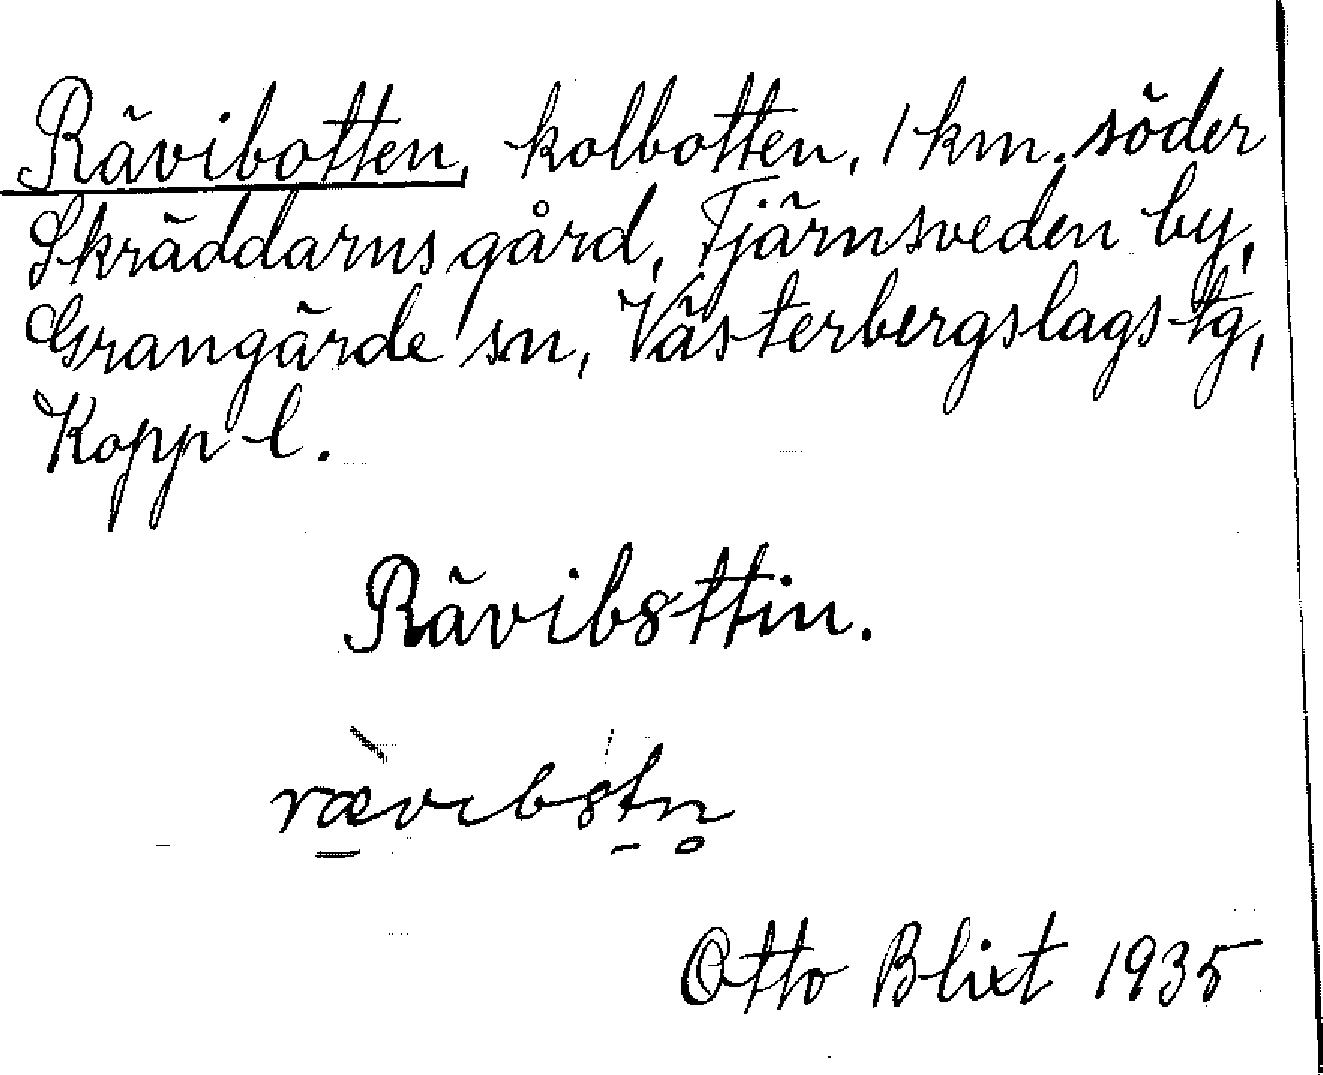 Rävibotten, kolbotten, 1 km. söder
Skräddarns gård, Tjärnsveden by,
Grangärde sn, Västerbergslags tg,
Kopp l.
Rävib8ttin.
rævɩb8tn̥
Otto Blixt 1935